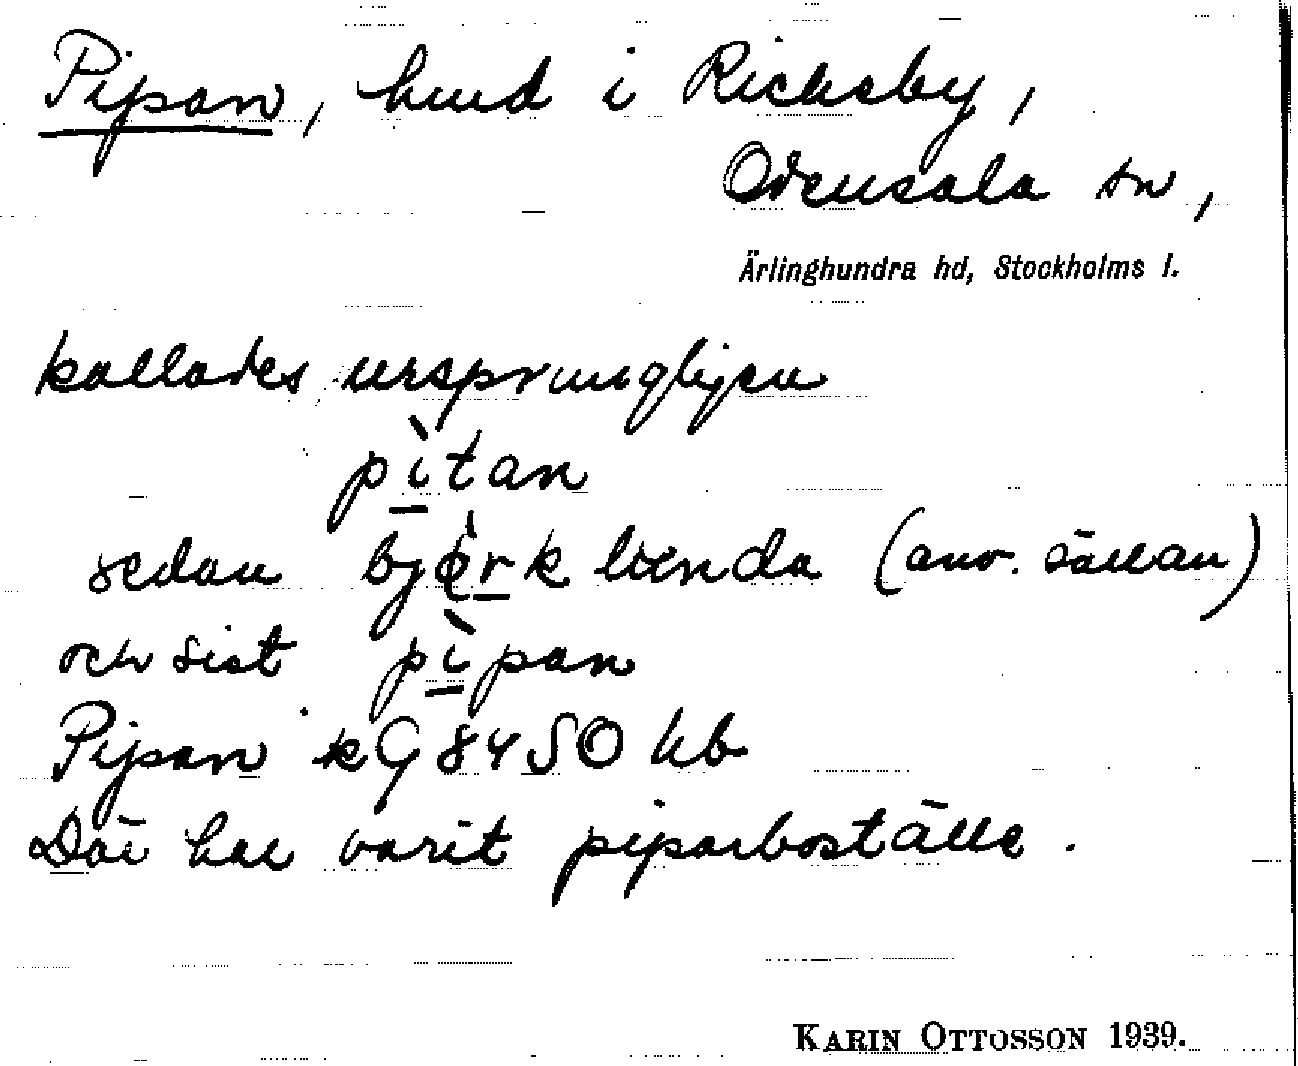 Pipan, hmd i Ricksby,
Odensala sn,
Ärlinghundra hd, Stockholms l.
kallades ursprungligen
pìtan
sedan björklunda (anv. sällan)
och sist pìpan
Pipan kG 8450 hb
Där har varit piparboställe.
KARIN OTTOSSON 1939.